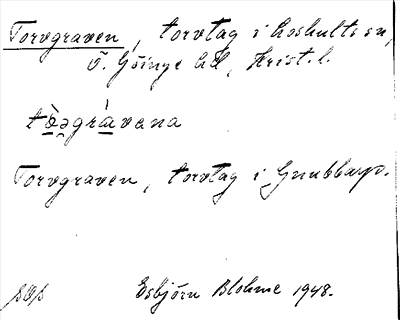 Torvgraven, torvtag i Loshults sn,
Ö. Göinge hd, Krist. l.
tò̱ə̯grà̱vena
Torvgraven, torvtag i Gnubbarp.
Esbjörn Blohme 1948.